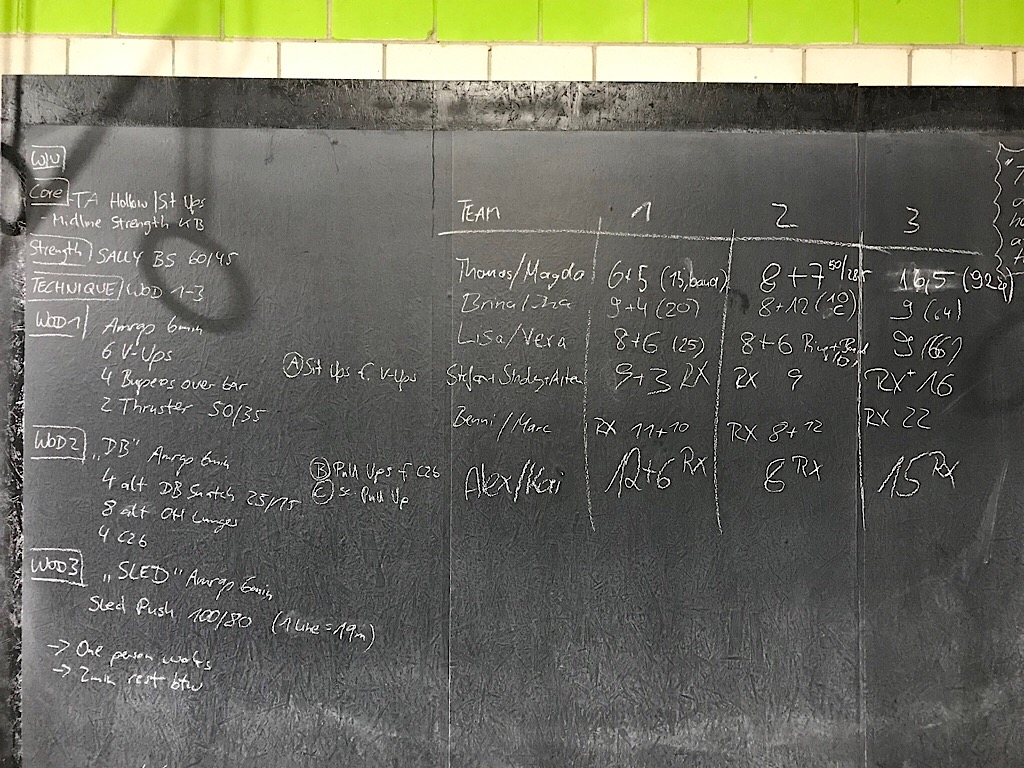 W/U
Core - TA Hollow / Sit Ups
- Midline Strength KB
Strength SALLY BS 60/45
TECHNIQUE / WOD 1-3
WOD1 Amrap 6min
6 V-Ups
4 Bupees over bar
2 Thruster 50/35
(A) Sit Ups f V-Ups
WOD2 "DB" Amrap 6min
4 alt DB Snatch
8 alt OH Lunges
4 C2B
(B) Pull Ups f C2B
(C) Pull Up
WOD3 "SLED" Amrap 6min
Sled Push 100/80 (1 Line = 19m)
-> One person works
-> 2min rest btw
TEAM 1 2 3
Thomas/Magda 6+5 (15, band) 8+7 16,5
Brina/ 9+4 (20) 8+12 9 (64)
Lisa/Vera 8+6 (25) 8+6 9 (66)
9+3 RX RX 9 RX+ 16
Benni/Marc RX 11+10 RX 8+12 RX 22
Alex/Kai 12+6 RX 8 RX 15 RX